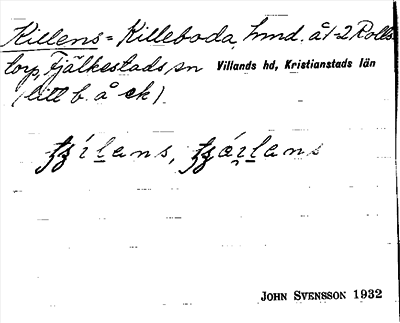 Killens = Killeboda, hmd. å 1-2 Rolls-
torp, Fjälkestads sn Villands hd, Kristianstads län
(litt b. å ck).
JOHN SVENSSON 1932